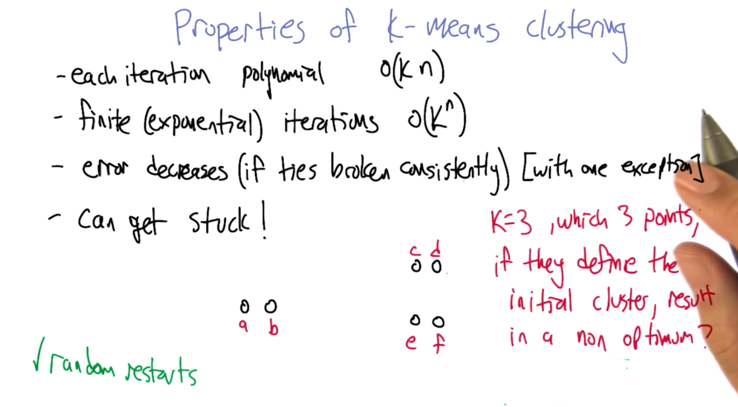 Properties of k-means clustering
- each iteration polynomial O(kn)
- finite (exponential) iterations O(kⁿ)
- error decreases (if ties broken consistently) [with one exception]
- can get stuck!
K=3, which 3 points,
if they define the
initial cluster, result
in a non optimum?
c d
a b
e f
√random restarts